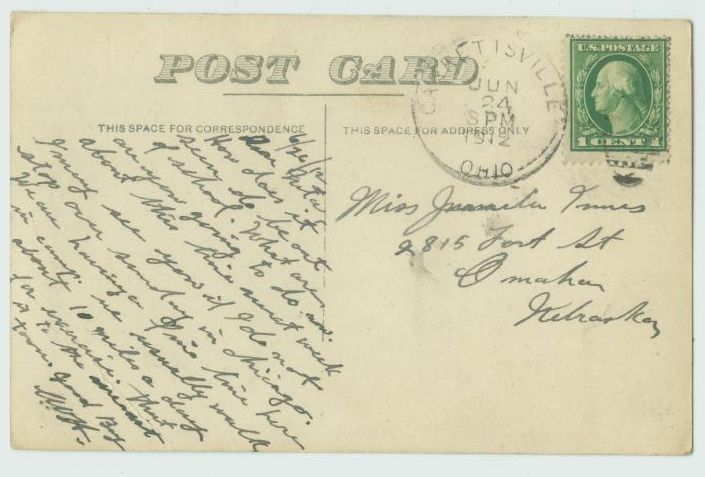 POST CARD
THIS SPACE FOR CORRESPONDENCE
THIS SPACE FOR ADDRESS ONLY
GARRETTSVILLE
JUN
24
5 PM
1912
OHIO
U.S. POSTAGE
1 CENT 1
6/24/12
Dear
How does it
seem to be out
of school. What are
you going to do now.
about this time next week
I may see you if I do not
stop over Sunday in Chicago.
We are having a fine time here
in camp. we usually walk
about 10 miles a day
for exercise. that
is to the nearest
town. Good By
Miss Juanita Innes
2815 Fort St
Omaha
Nebraska